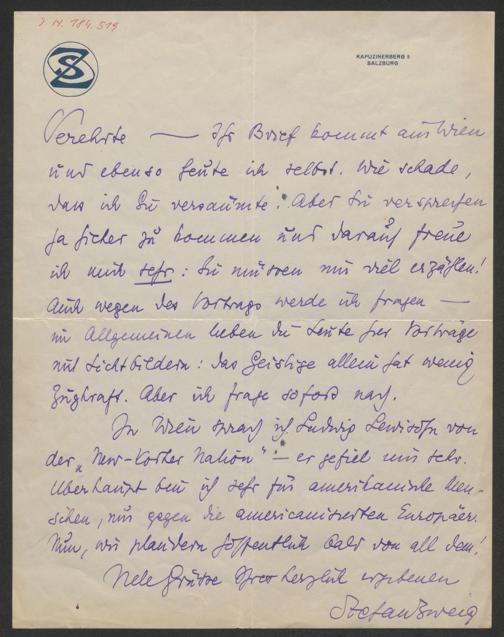 J. N. 184.519
SZ
KAPUZINERBERG 5
SALZBURG
Verehrte — Ihr Brief kommt aus Wien
und ebenso heute ich selbst. Wie schade,
dass ich Sie versäumte! Aber Sie versprechen
ja sicher zu kommen und darauf freue
ich mich sehr: Sie müssen mir viel erzählen!
Auch wegen des Vortrags werde ich fragen —
im Allgemeinen lieben die Leute hier Vorträge
mit Lichtbildern: das Geistige allein hat wenig
Zugkraft. Aber ich frage sofort nach.
In Wien sprach ich Ludwig Lewisohn von
der „New-Yorker Nation" – er gefiel mir sehr.
Überhaupt bin ich sehr für amerikanische Men-
schen, nur gegen die americanisierten Europäer.
Nun, wir plaudern hoffentlich bald von all dem!
Viele Grüsse Ihres herzlich ergebenen
Stefan Zweig